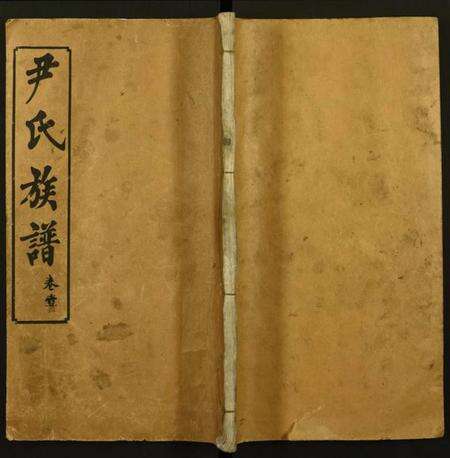 尹氏族譜卷壹